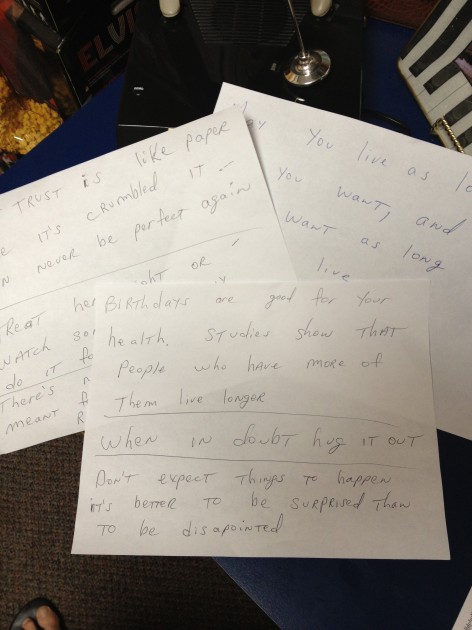 ELVIS
TRUST is like paper
it's crumbled it
never be perfect again
TREAT her right OR
WATCH
do it
There's
meant
You live as
You want, and
want as long
live
Birthdays are good for your
health. Studies show THAT
People who have more of
Them live longer
When in doubt hug it out
Don't expect things to happen
it's better to be surprised than
to be disapointed